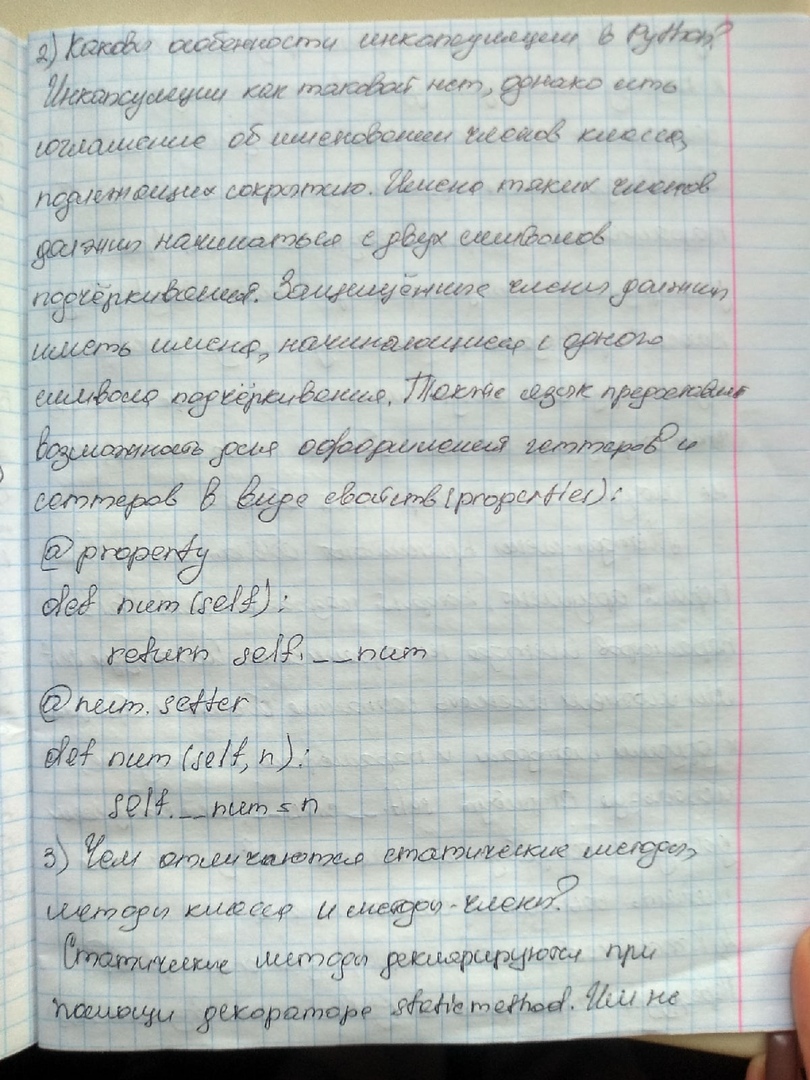 2) Каковы особенности инкапсуляции в Python?
Инкапсуляции как таковой нет, однако есть
соглашение об именовании членов класса,
подлежащих сокрытию. Имена таких членов
должны начинаться с двух символов
подчёркивания. Защищённые члены должны
иметь имена, начинающиеся с одного
символа подчёркивания. Также язык предоставляет
возможность для оформления геттеров и
сеттеров в виде свойств (properties):
@property
def num (self):
return self.__num
@num.setter
def num (self, n):
self.__num = n
3) Чем отличаются статические методы,
методы класса и методы-члены?
Статические методы декларируются при
помощи декоратора staticmethod. Им не